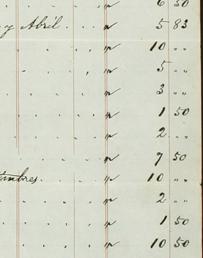 . " 6 50
y Abril . " 5 83
. " 10 " "
. . , " 5 " "
. . . " 3 " "
. . . " 1 50
. . . " 2 " "
. . . " 7 50
timbres . . " 10 " "
. . . . " 2 " "
. . . . " 1 50
. . . . " 10 50